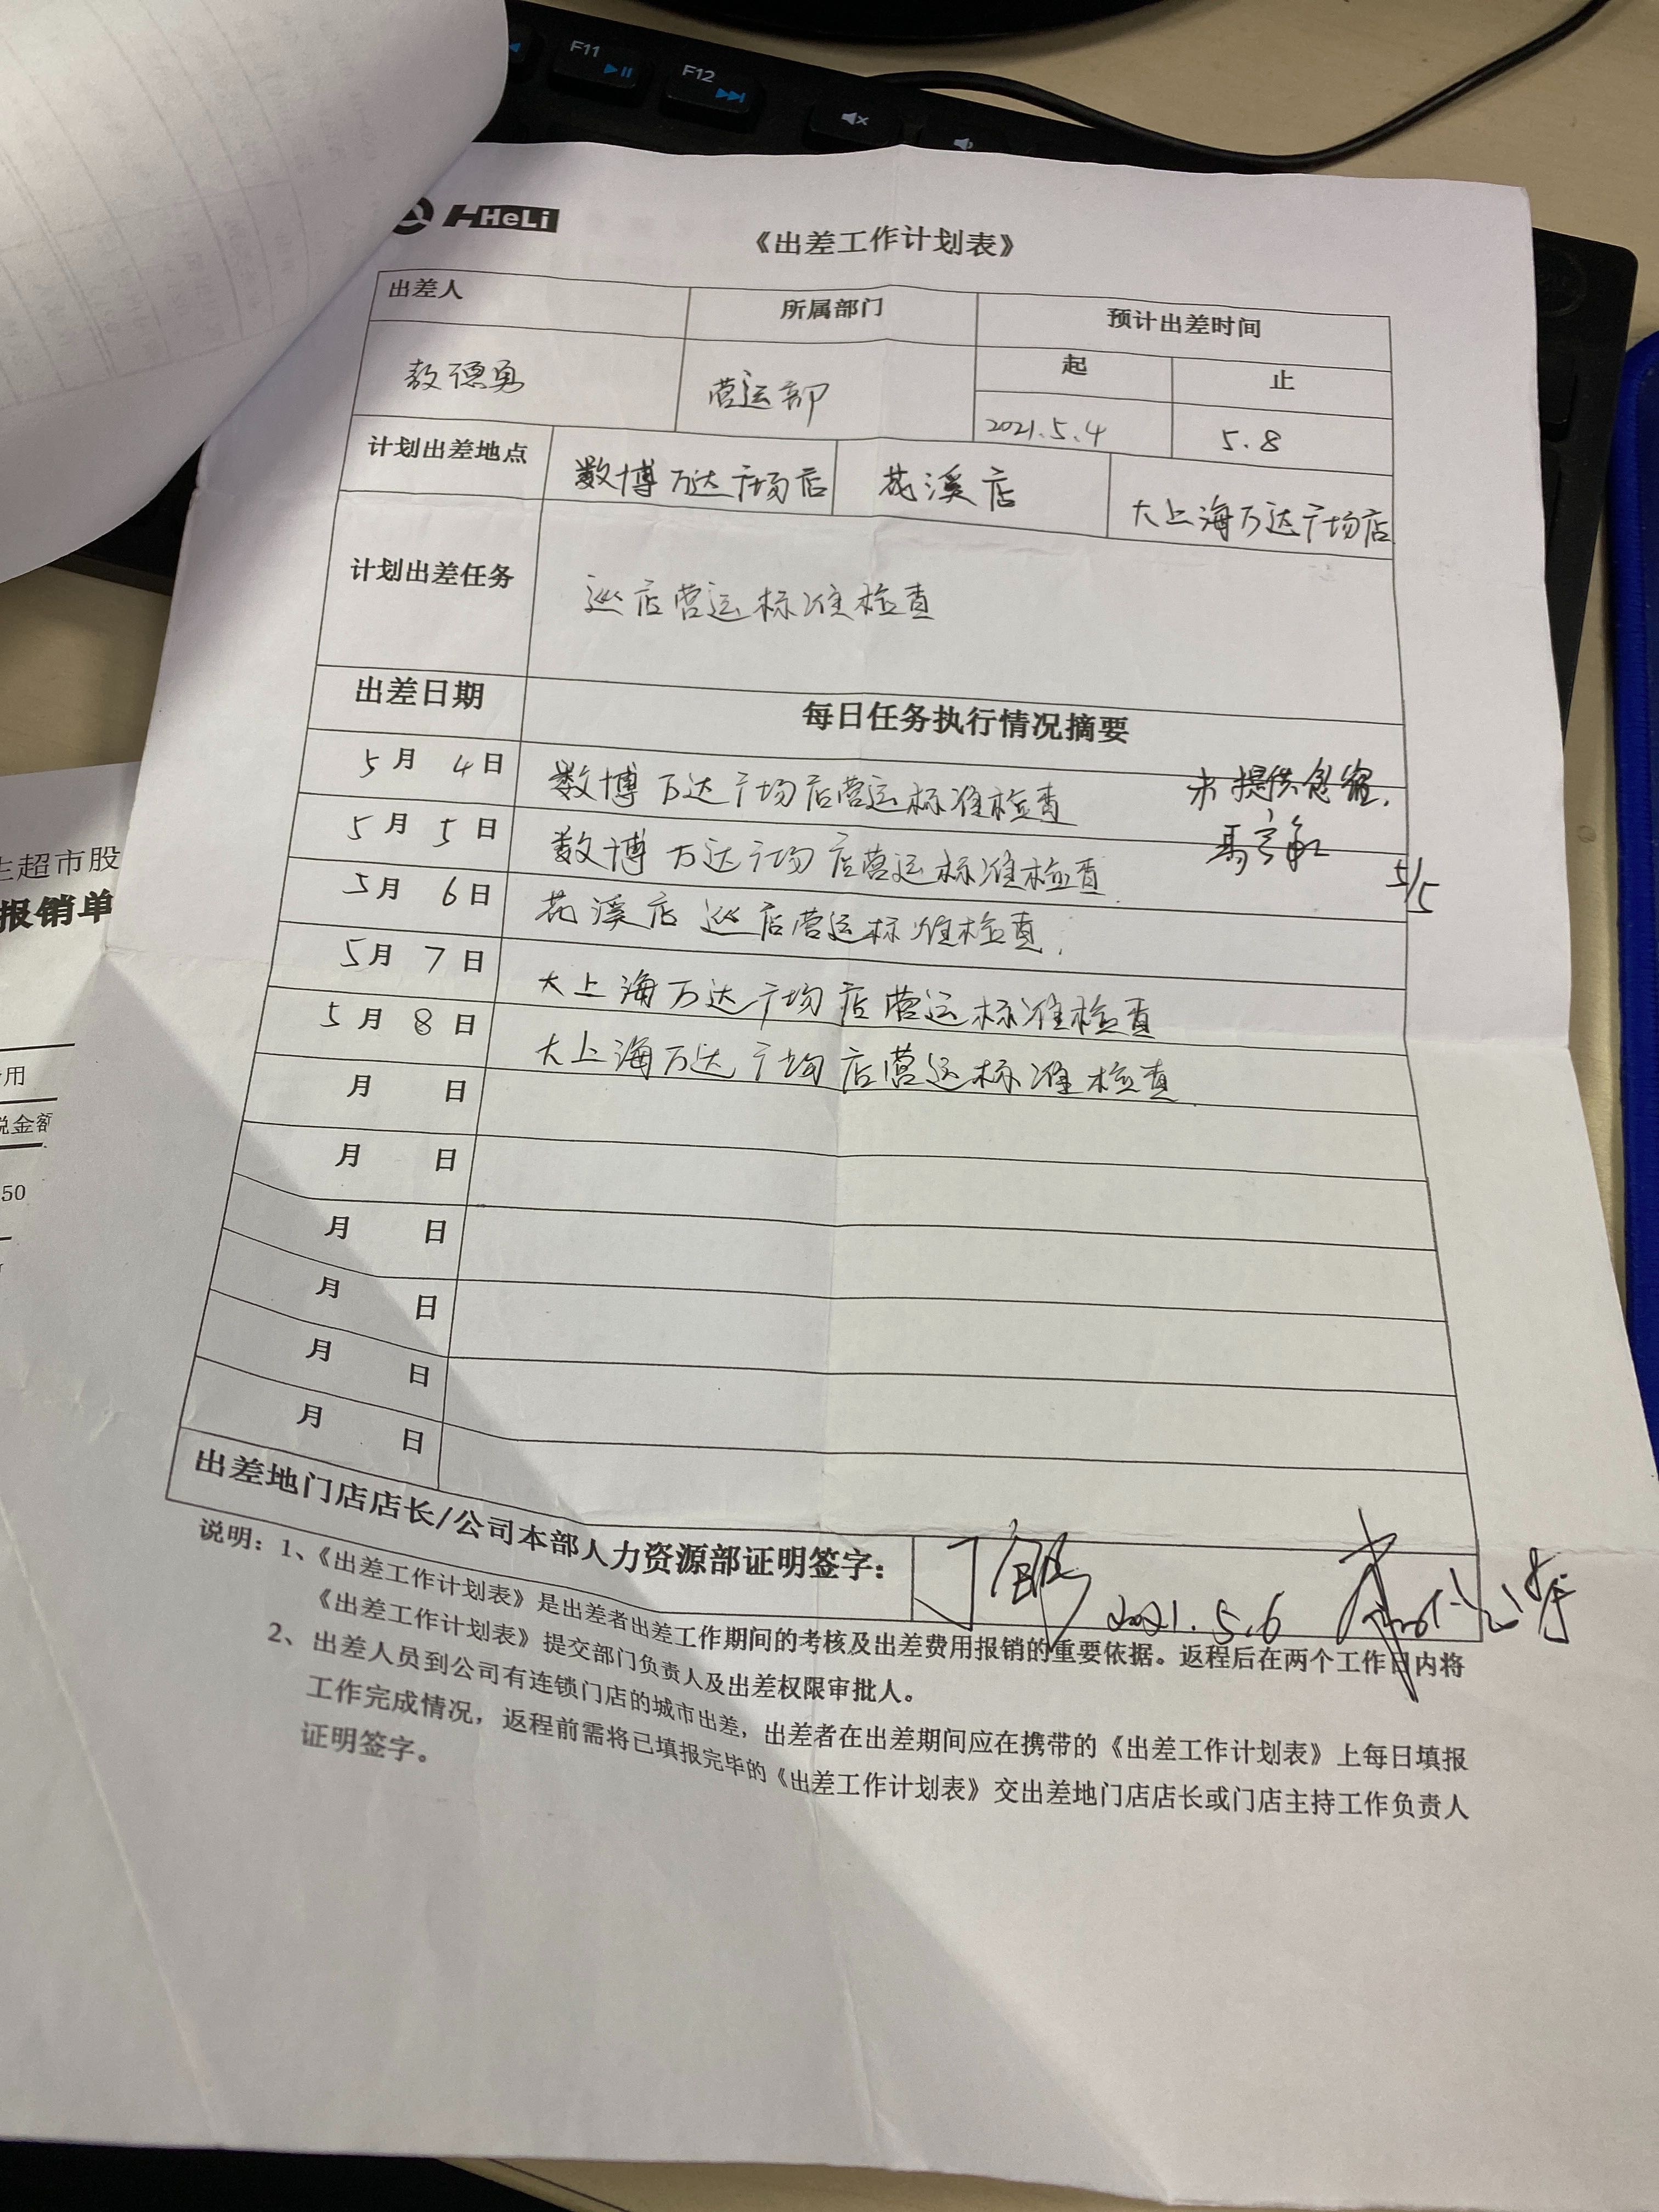 F11
F12
HeLi
《出差工作计划表》
出差人
所属部门
预计出差时间
起
止
敖德勇
营运部
2021.5.4
5.8
计划出差地点
数博万达广场店
花溪店
大上海万达广场店
计划出差任务
巡店营运标准检查
出差日期
每日任务执行情况摘要
5月4日
数博万达广场店营运标准检查
未提供食宿.
5月5日
数博万达广场店营运标准检查
5/5
5月6日
花溪店巡店营运标准检查.
5月7日
大上海万达广场店营运标准检查
5月8日
大上海万达广场店营运标准检查
月 日
月 日
月 日
月 日
月 日
月 日
出差地门店店长/公司本部人力资源部证明签字：
2021.5.6
说明：1、《出差工作计划表》是出差者出差工作期间的考核及出差费用报销的重要依据。返程后在两个工作日内将
《出差工作计划表》提交部门负责人及出差权限审批人。
2、出差人员到公司有连锁门店的城市出差，出差者在出差期间应在携带的《出差工作计划表》上每日填报
工作完成情况，返程前需将已填报完毕的《出差工作计划表》交出差地门店店长或门店主持工作负责人
证明签字。
生超市股
报销单
用
税金额
50